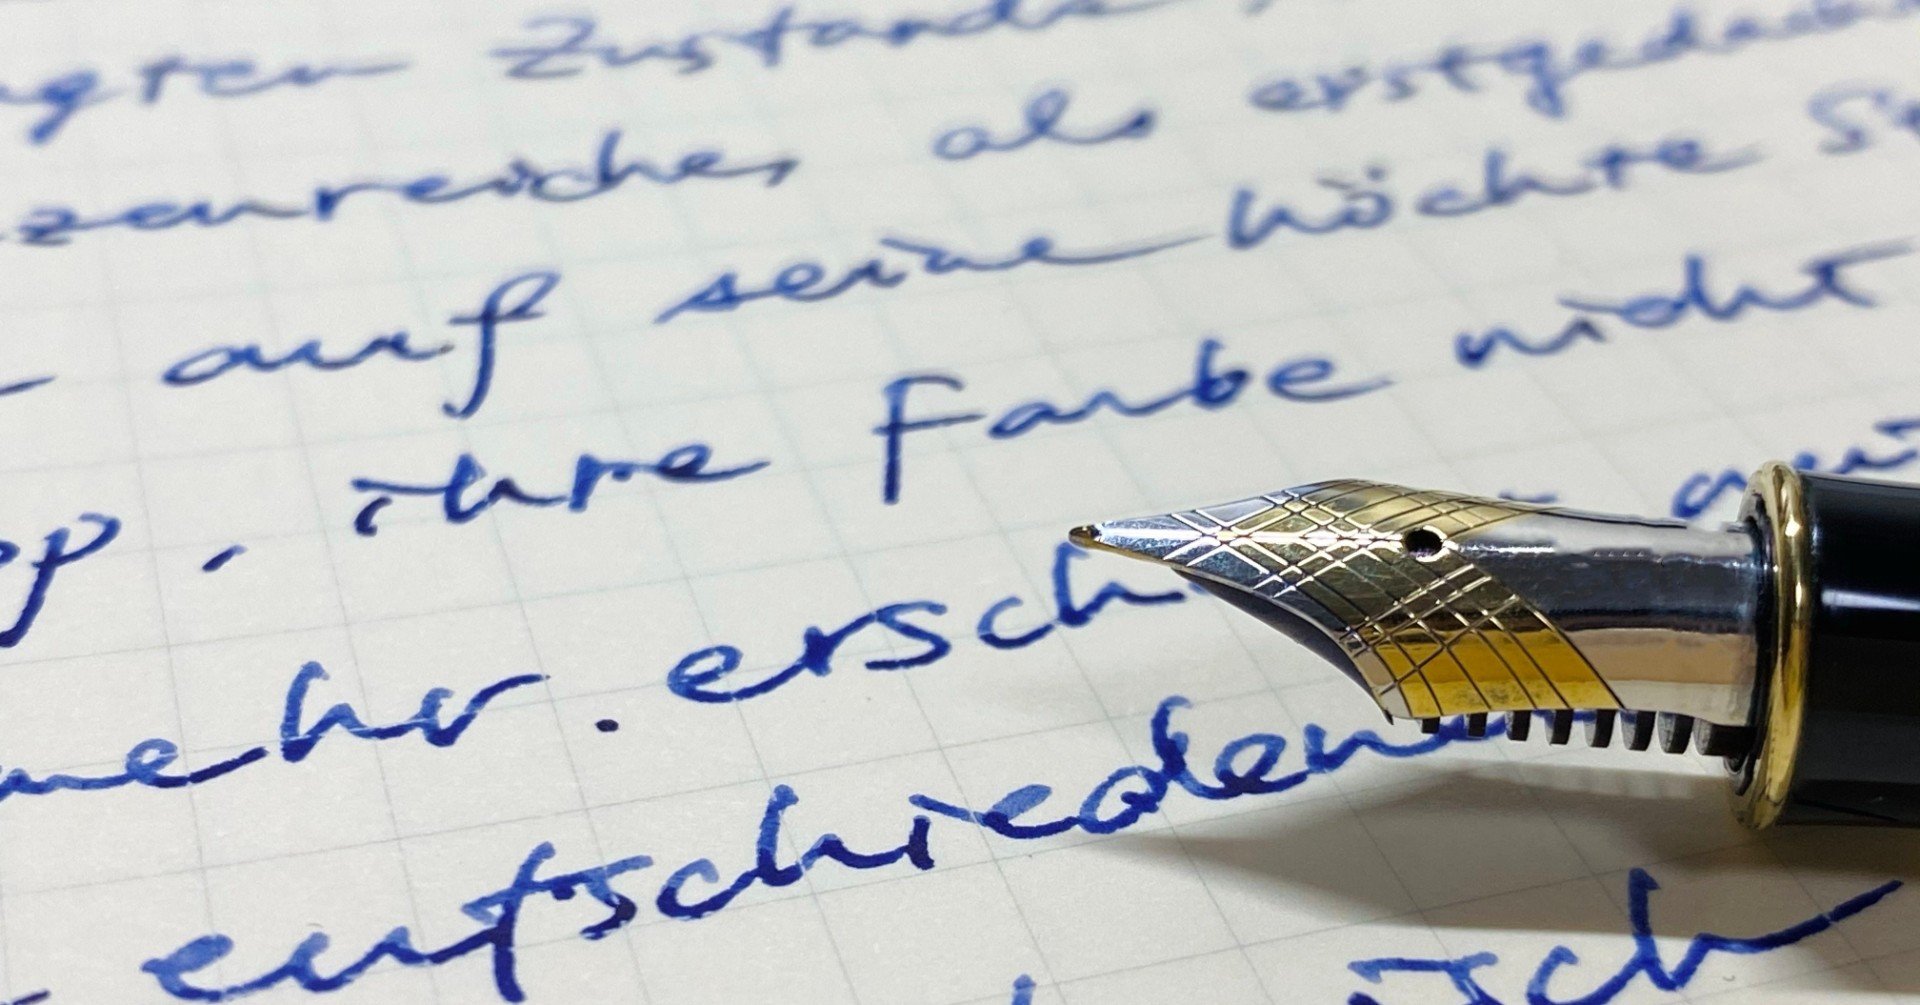 Zustande
zenreiches als erstgedach
auf seine höchte
ihre Farbe nicht
mehr. ersch
entschieden
isch